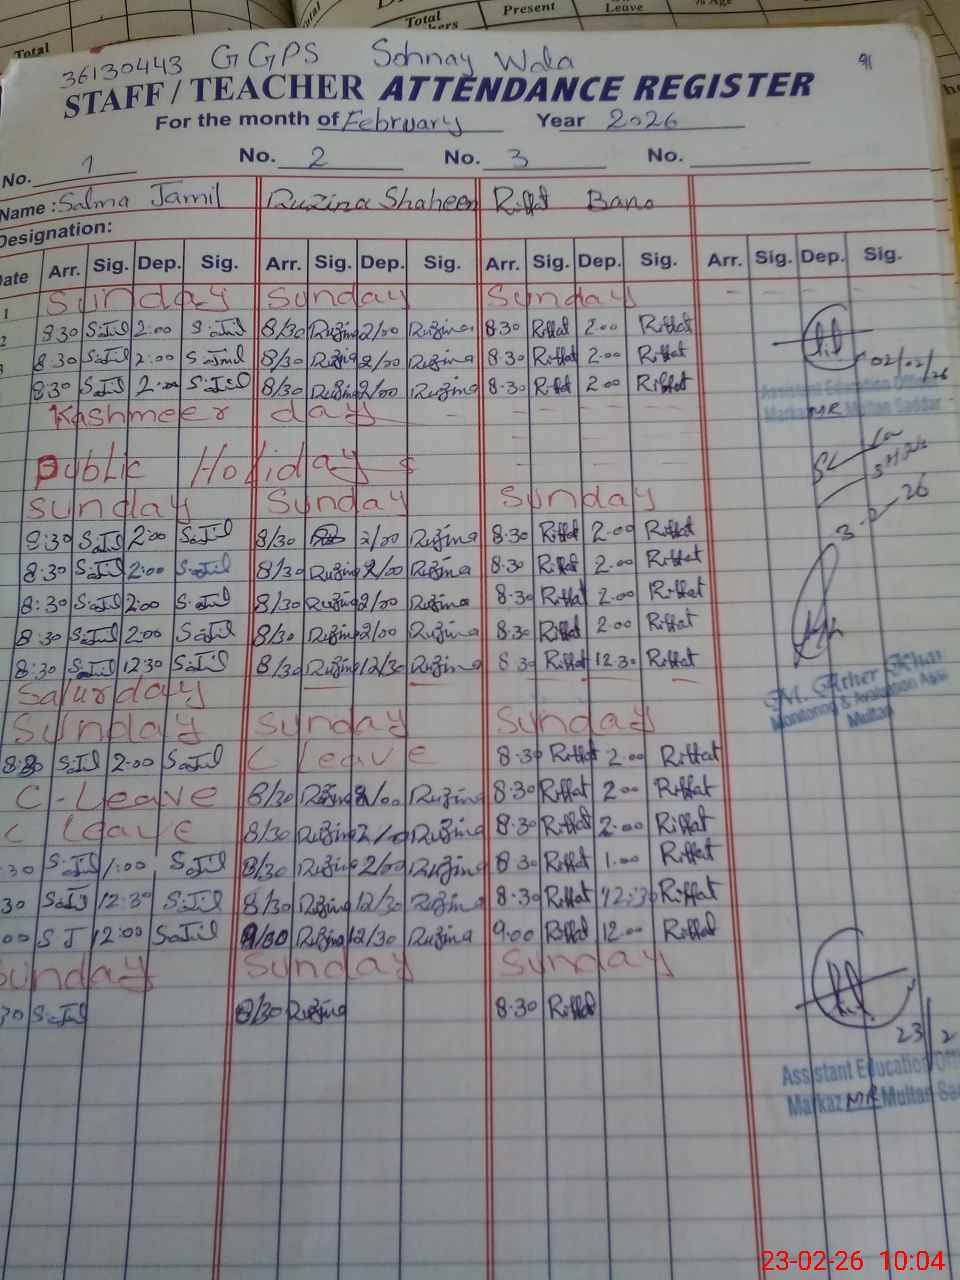 Total
Present
Leave
36130443 GGPS Sohnay Wala
STAFF / TEACHER ATTENDANCE REGISTER
For the month of February Year 2026
No. 1 No. 2 No. 3 No.
Name : Salma Jamil Ruzina Shaheen Riffat Bano
Designation:
Date Arr. Sig. Dep. Sig. Arr. Sig. Dep. Sig. Arr. Sig. Dep. Sig. Arr. Sig. Dep. Sig.
1 Sunday Sunday Sunday
2 8:30 S.Jil 2:00 S.Jil 8/30 Ruzina 2/00 Ruzina 8:30 Riffat 2:00 Riffat
3 8:30 S.Jil 2:00 S.Jmil 8/30 Ruzina 2/00 Ruzina 8:30 Riffat 2:00 Riffat
8:30 S.Jil 2:00 S.Jil 8/30 Ruzina 2/00 Ruzina 8:30 Riffat 2:00 Riffat
02/02/26
Assistant Education Officer
Markaz MR Multan Saddar
Kashmeer day
Public Holiday
Sunday Sunday Sunday
8:30 S.Jil 2:00 S.Jil 8/30 2/00 Ruzina 8:30 Riffat 2:00 Riffat
8:30 S.Jil 2:00 S.Jil 8/30 Ruzina 2/00 Ruzina 8:30 Riffat 2:00 Riffat
8:30 S.Jil 2:00 S.Jil 8/30 Ruzina 2/00 Ruzina 8:30 Riffat 2:00 Riffat
8:30 S.Jil 2:00 S.Jil 8/30 Ruzina 2/00 Ruzina 8:30 Riffat 2:00 Riffat
8:30 S.Jil 12:30 S.Jil 8/30 Ruzina 12/30 Ruzina 8:30 Riffat 12:30 Riffat
Saturday
Monitoring & Evaluation
Multan
Sunday Sunday Sunday
8:30 S.Jil 2:00 S.Jil C Leave 8:30 Riffat 2:00 Riffat
C-Leave 8/30 Ruzina 2/00 Ruzina 8:30 Riffat 2:00 Riffat
C Leave 8/30 Ruzina 2/00 Ruzina 8:30 Riffat 2:00 Riffat
:30 S.Jil 1:00 S.Jil 8/30 Ruzina 2/00 Ruzina 8:30 Riffat 1:00 Riffat
30 S.Jil 12:30 S.Jil 8/30 Ruzina 12/30 Ruzina 8:30 Riffat 12:30 Riffat
00 S J 12:00 S.Jil 9/30 Ruzina 12/30 Ruzina 9:00 Riffat 12:00 Riffat
Sunday Sunday Sunday
30 S.Jil 8/30 Ruzina 8:30 Riffat
23/2
Assistant Education
Markaz MR Multan
23-02-26 10:04